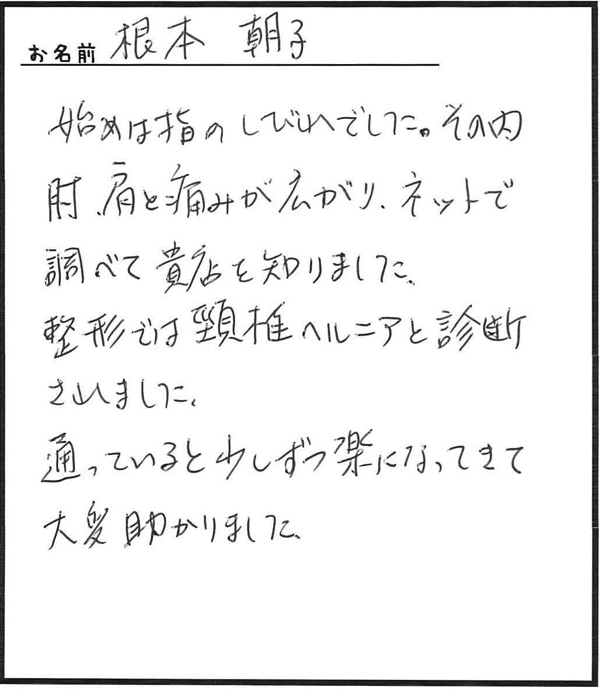 お名前 根本 朝子
始めは指のしびれでした。その内
肘、肩と痛みが広がり、ネットで
調べて貴店を知りました。
整形では頸椎ヘルニアと診断
されました。
通っていると少しずつ楽になってきて
大変助かりました。